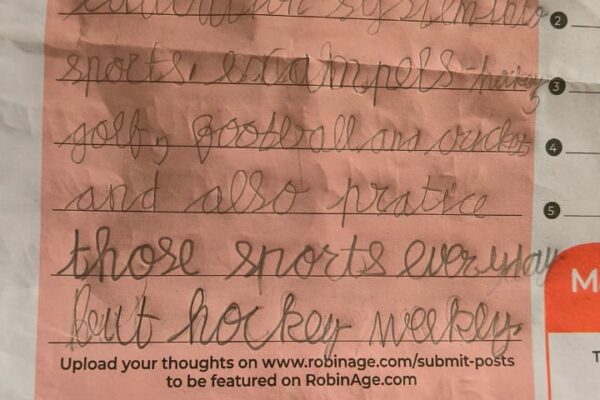 education system into
sports, exampels - hockey
golf, football and cricket
and also pratice
those sports everyday
but hockey weekly.
Upload your thoughts on www.robinage.com/submit-posts
to be featured on RobinAge.com
2
3
4
5
M
T